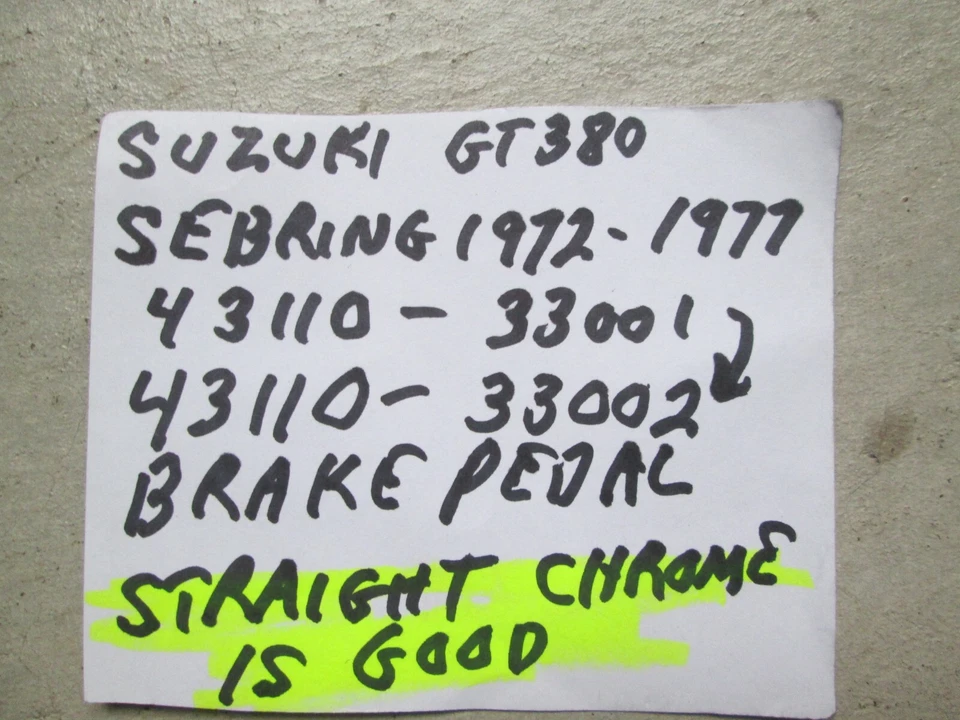 SUZUKI GT380
SEBRING 1972-1977
43110-33001
43110-33002
BRAKE PEDAL
STRAIGHT CHROME
IS GOOD